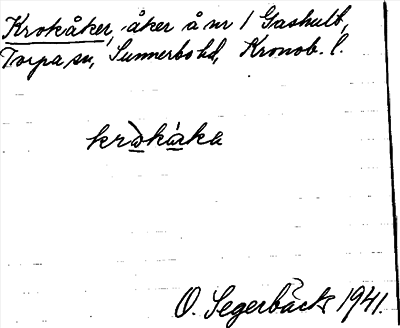 Krokåker, åker å nr 1 Gashult,
Torpa sn, Sunnerbo hd, Kronob. l.
O. Segerbäck 1941.